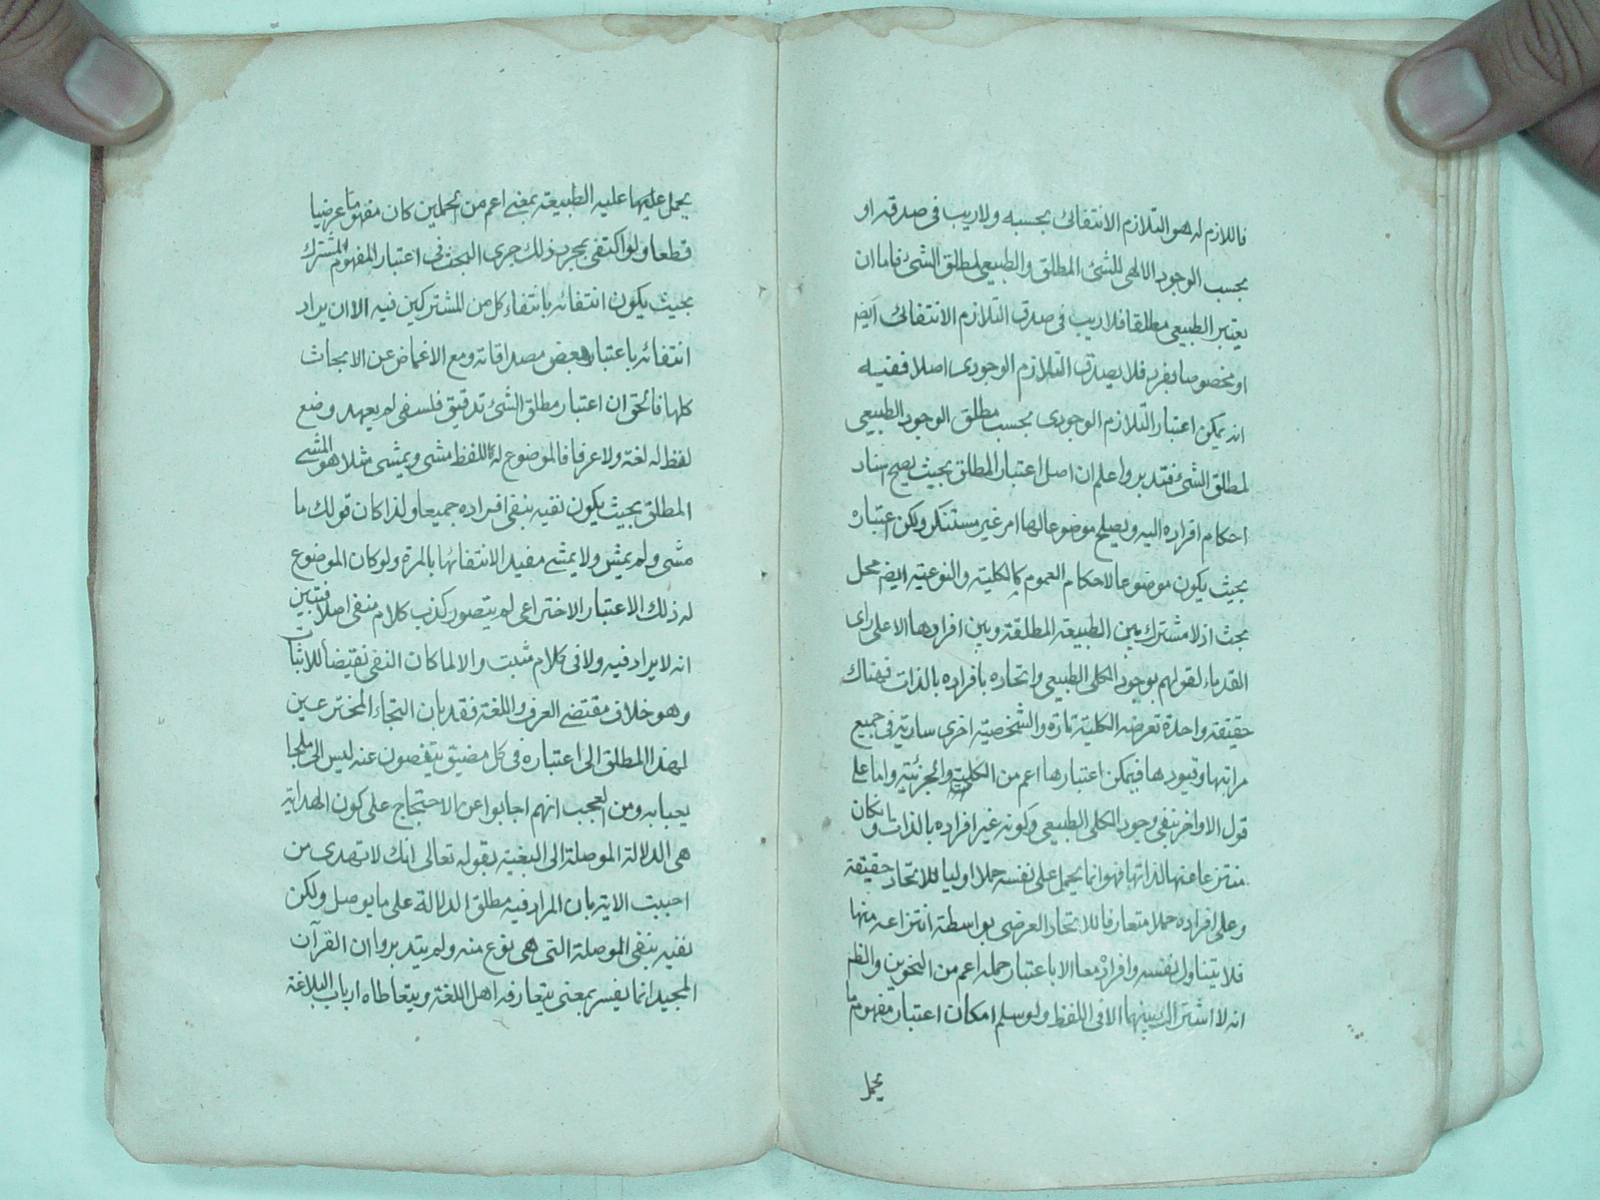 فاللازم له هو التلازم الانتفائى بحسبه ولا ريب فى صدقه او
بحسب الوجود الالهى للشئ المطلق والطبيعى لمطلق الشئ فاما ان
يعتبر الطبيعى مطلقا فلا ريب فى صدق التلازم الانتفائى ايضا
او مخصوصا بفرد فلا يصدق التلازم الوجودى اصلا ففيه
انه يمكن اعتبار التلازم الوجودى بحسب مطلق الوجود الطبيعى
لمطلق الشئ فتدبر واعلم ان اصل اعتبار المطلق بحيث يصح اسناد
احكام افراده اليه ويصلح موضوعا لها امر غير مستنكر ولكن اعتباره
بحيث يكون موضوعا لاحكام العموم كالكلية والنوعية ايضا محل
بحث اذ لا مشترك بين الطبيعة المطلقة وبين افرادها الا على راى
القدماء لقولهم بوجود الكلى الطبيعى واتحاده بافراده بالذات فهناك
حقيقة واحدة تعرضه الكلية تارة والشخصية اخرى سارية فى جميع
مراتبها وقيودها فيمكن اعتبارها اعم من الكلية والجزئية واما على
قول الاواخر بنفى وجود الكلى الطبيعى وكونه غير افراده بالذات وان كان
منتزعا عنها لذاتها فهو انما يحمل على نفسه حملا اوليا للاتحاد حقيقة
وعلى افراده حملا متعارفا للاتحاد العرضى بواسطة انتزاعه منها
فلا يتناول نفسه وافراده معا الا باعتبار حمله اعم من النحوين والظم
انه لا اشتراك بينهما الا فى اللفظ ولو سلم امكان اعتبار مفهوم ما
يحمل
يحمل عليها عليه الطبيعة بمعنى اعم من الحملين كان مفهوما عرضيا
قطعا ولو اكتفى بمجرد ذلك جرى البحث فى اعتبار المفهوم المشترك
بحيث يكون انتفائه بانتفاء كل من المشتركين فيه الا ان يراد
انتفائه باعتبار بعض مصداقاته ومع الاغماض عن الابحاث
كلها فالحق ان اعتبار مطلق الشئ تدقيق فلسفى لم يعهد وضع
لفظ له لغة ولا عرفا فالموضوع له للفظ مشى ويمشى مثلا هو المشى
المطلق بحيث يكون نفيه بنفى افراده جميعا ولذا كان قولك ما
مشى ولم يمش ولا يمشى مفيد الانتفائها بالمرة ولو كان الموضوع
له ذلك الاعتبار الاختراعى لم يتصور كذب كلام منفى اصلا فتبين
انه لا يراد فيه ولا فى كلام مثبت والا لما كان النفى نقيضا للاثبات
وهو خلاف مقتضى العرف واللغة فقد بان التجاء المخترعين
لهذا المطلق الى اعتباره فى كل مضيق يتفصون عنه ليس الى ملجا
يعبا به ومن العجب انهم اجابوا عن الاحتجاج على كون الهداية
هى الدلالة الموصلة الى البغية بقوله تعالى انك لا تهدى من
احببت الاية بان المراد فيه مطلق الدلالة على ما يوصل ولكن
نفيه بنفى الموصلة التى هى نوع منه ولم يتدبروا ان القرآن
المجيد انما يفسر بمعنى يتعارفه اهل اللغة ويتعاطاه ارباب البلاغة